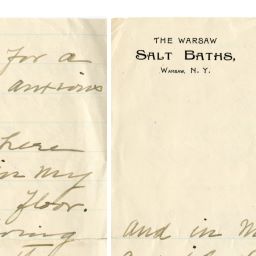 for a
anxious
here
in my
floor.
THE WARSAW
SALT BATHS,
WARSAW, N. Y.
and in